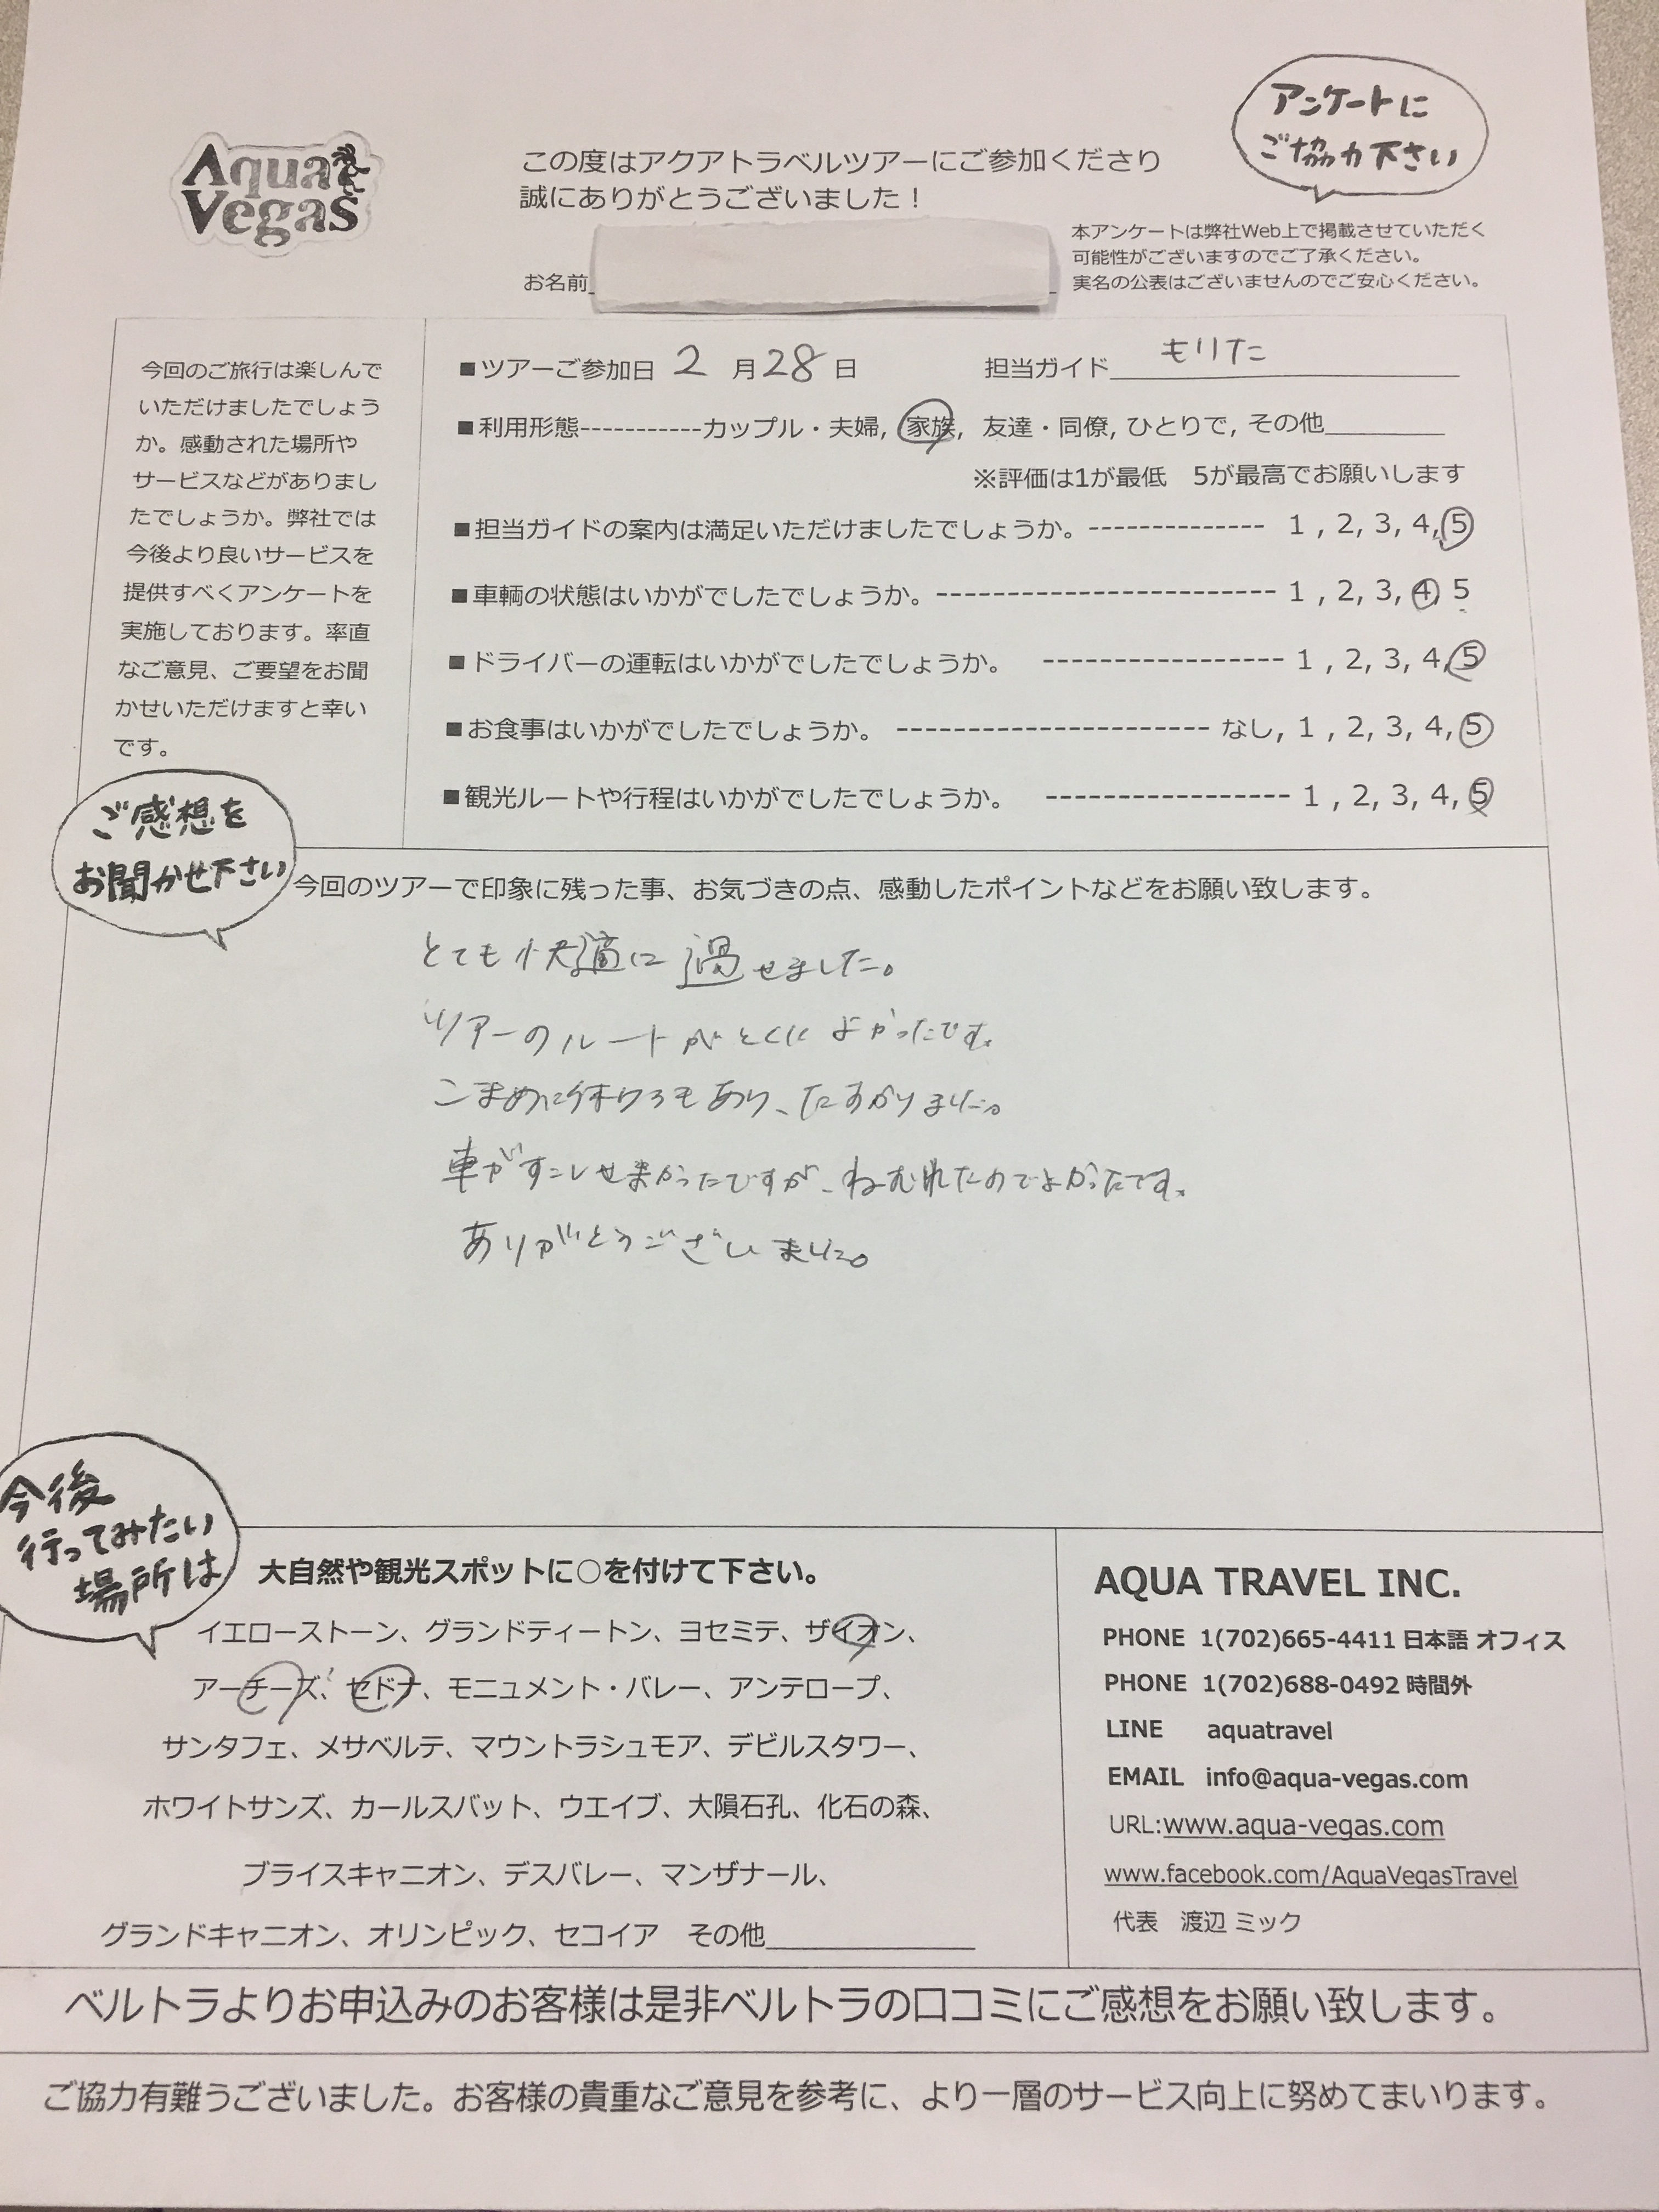 Aqua
Vegas
アンケートに
ご協力下さい
この度はアクアトラベルツアーにご参加くださり
誠にありがとうございました！
本アンケートは弊社Web上で掲載させていただく
可能性がございますのでご了承ください。
実名の公表はございませんのでご安心ください。
お名前
今回のご旅行は楽しんで
いただけましたでしょう
か。感動された場所や
サービスなどがありまし
たでしょうか。弊社では
今後より良いサービスを
提供すべくアンケートを
実施しております。率直
なご意見、ご要望をお聞
かせいただけますと幸い
です。
■ツアーご参加日 2 月 28 日 担当ガイド もりた
■利用形態-----------カップル・夫婦, 家族, 友達・同僚, ひとりで, その他
※評価は1が最低 5が最高でお願いします
■担当ガイドの案内は満足いただけましたでしょうか。------------- 1 , 2, 3, 4, 5
■車輌の状態はいかがでしたでしょうか。------------------------ 1 , 2, 3, 4, 5
■ドライバーの運転はいかがでしたでしょうか。 ----------------- 1 , 2, 3, 4, 5
■お食事はいかがでしたでしょうか。 ---------------------- なし, 1 , 2, 3, 4, 5
■観光ルートや行程はいかがでしたでしょうか。 ----------------- 1 , 2, 3, 4, 5
ご感想を
お聞かせ下さい
今回のツアーで印象に残った事、お気づきの点、感動したポイントなどをお願い致します。
とても快適に過せました。
ツアーのルートがとくによかったです。
こまめに休けるもあり、たすかりました。
車がすこしせまかったですが、ねむれたのでよかったです。
ありがとうございました。
今後
行ってみたい
場所は
大自然や観光スポットに○を付けて下さい。
イエローストーン、グランドティートン、ヨセミテ、ザイオン、
アーチーズ、セドナ、モニュメント・バレー、アンテロープ、
サンタフェ、メサベルテ、マウントラシュモア、デビルスタワー、
ホワイトサンズ、カールスバット、ウエイブ、大隕石孔、化石の森、
ブライスキャニオン、デスバレー、マンザナール、
グランドキャニオン、オリンピック、セコイア その他
AQUA TRAVEL INC.
PHONE 1(702)665-4411 日本語 オフィス
PHONE 1(702)688-0492 時間外
LINE aquatravel
EMAIL info@aqua-vegas.com
URL:www.aqua-vegas.com
www.facebook.com/AquaVegasTravel
代表 渡辺 ミック
ベルトラよりお申込みのお客様は是非ベルトラの口コミにご感想をお願い致します。
ご協力有難うございました。お客様の貴重なご意見を参考に、より一層のサービス向上に努めてまいります。